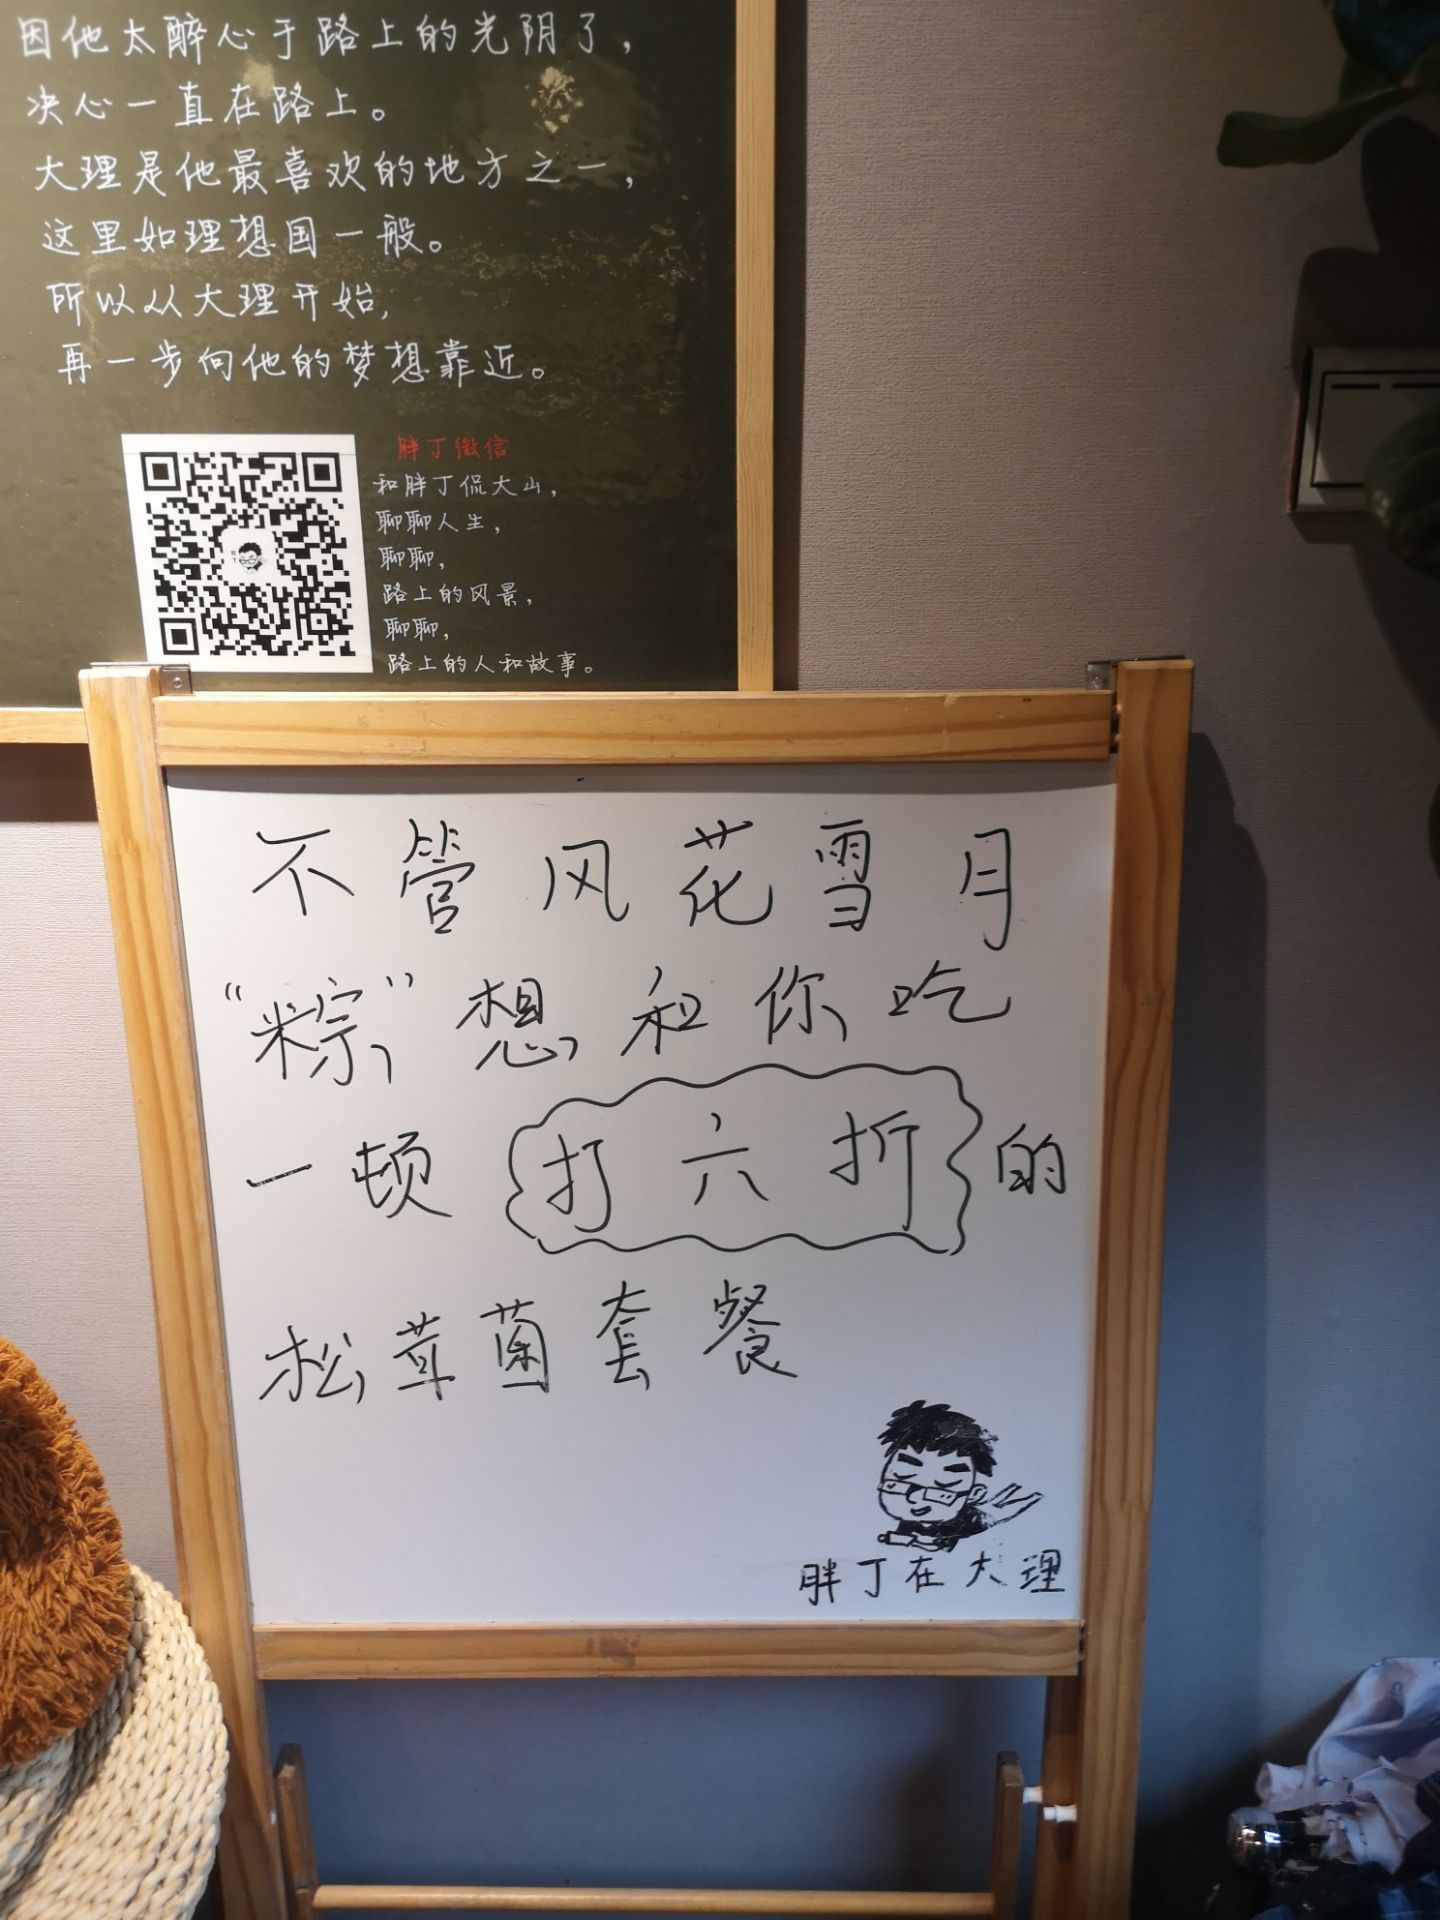 因他太醉心于路上的光阴了，
决心一直在路上。
大理是他最喜欢的地方之一，
这里如理想国一般。
所以从大理开始，
再一步向他的梦想靠近。
胖丁微信
和胖丁侃大山，
聊聊人生，
聊聊，
路上的风景，
聊聊，
路上的人和故事。
不管风花雪月
“粽”想和你吃
一顿打六折的
松茸菌套餐
胖丁在大理